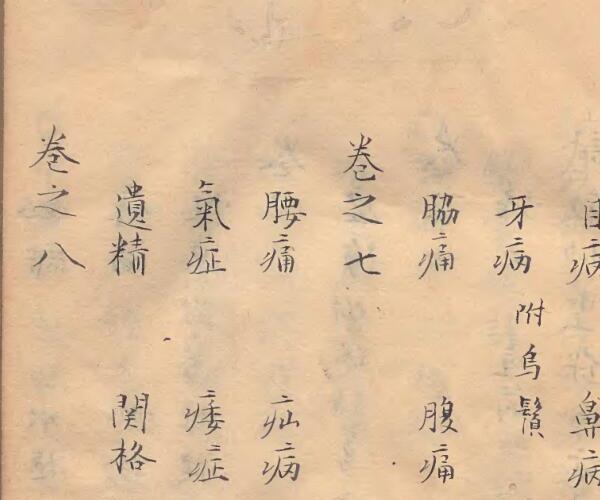 目病 鼻病
牙病 附烏鬚
脇痛 腹痛
卷之七
腰痛 疝病
氣症 痿症
遺精 関格
卷之八